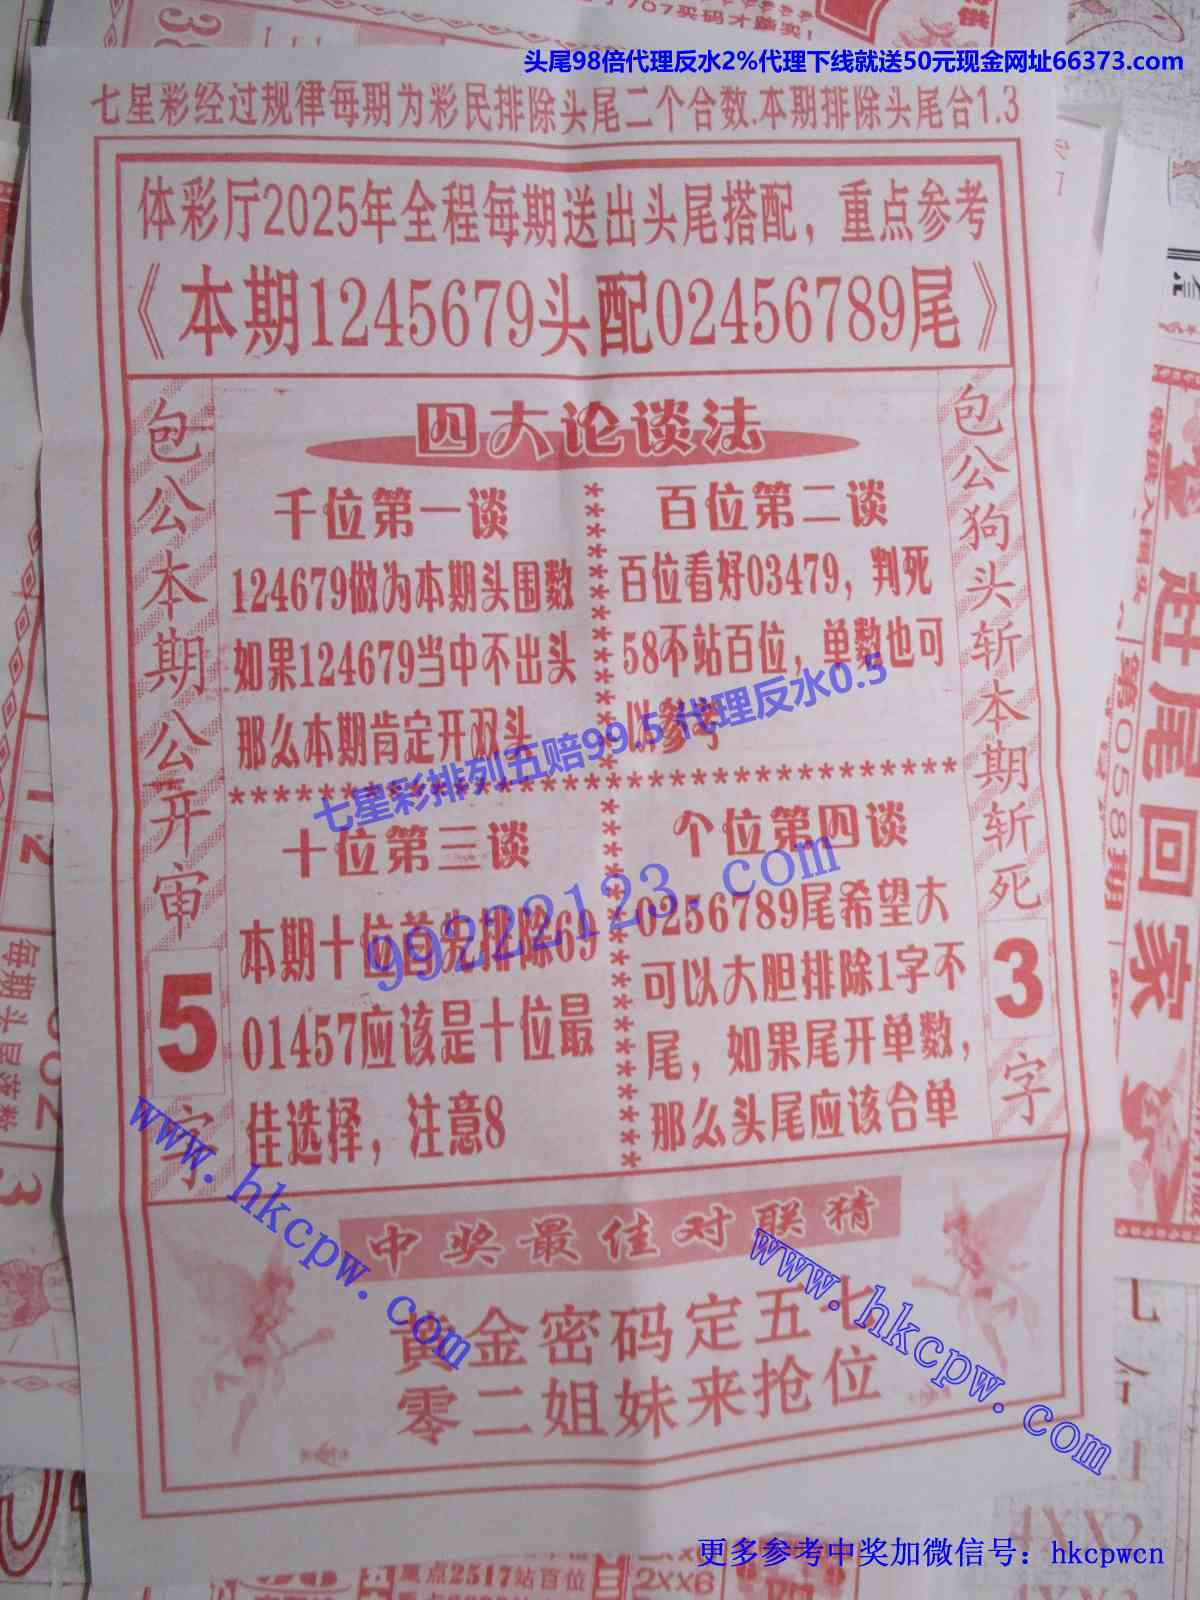 707买码才踏实!
头尾98倍代理反水2%代理下线就送50元现金网址66373.com
七星彩经过规律每期为彩民排除头尾二个合数.本期排除头尾合1.3
体彩厅2025年全程每期送出头尾搭配，重点参考
《本期1245679头配02456789尾》
包公本期公开审5字
四大论谈法
千位第一谈
124679做为本期头围数
如果124679当中不出头
那么本期肯定开双头
百位第二谈
百位看好03479，判死
58不站百位，单数也可
以参考
七星彩排列五赔99.5 代理反水0.5
十位第三谈
本期十位首先排除69
01457应该是十位最
佳选择，注意8
个位第四谈
0256789尾希望大
可以大胆排除1字不
尾，如果尾开单数，
那么头尾应该合单
99222123.com
包公狗头斩本期斩死3字
www.hkcpw.com
中奖最佳对联猜
黄金密码定五七
零二姐妹来抢位
www.hkcpw.com
赶尾回家
第058期
每期头尾落数
重点2517站百位
2XX6
更多参考中奖加微信号：hkcpwcn